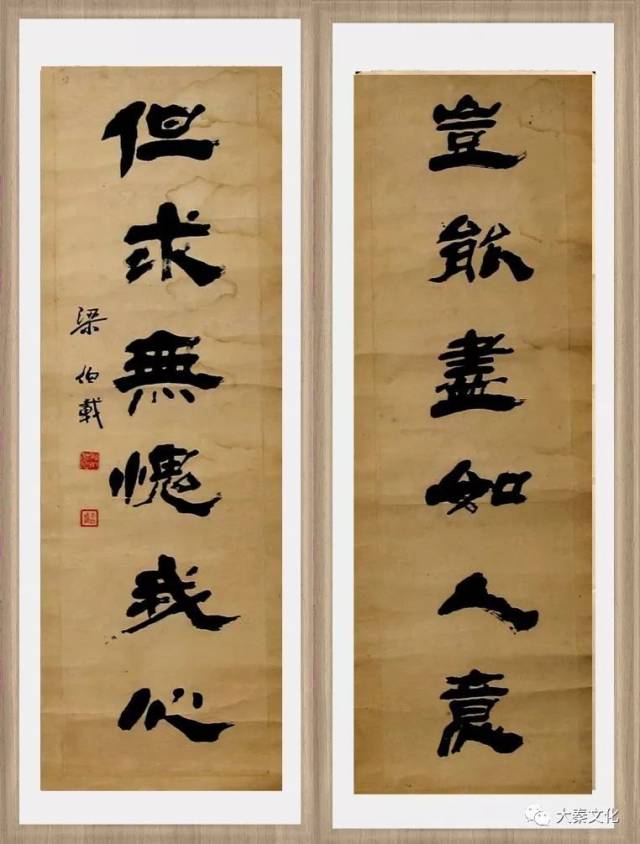 豈能盡如人意
但求無愧我心
梁伯載
大秦文化